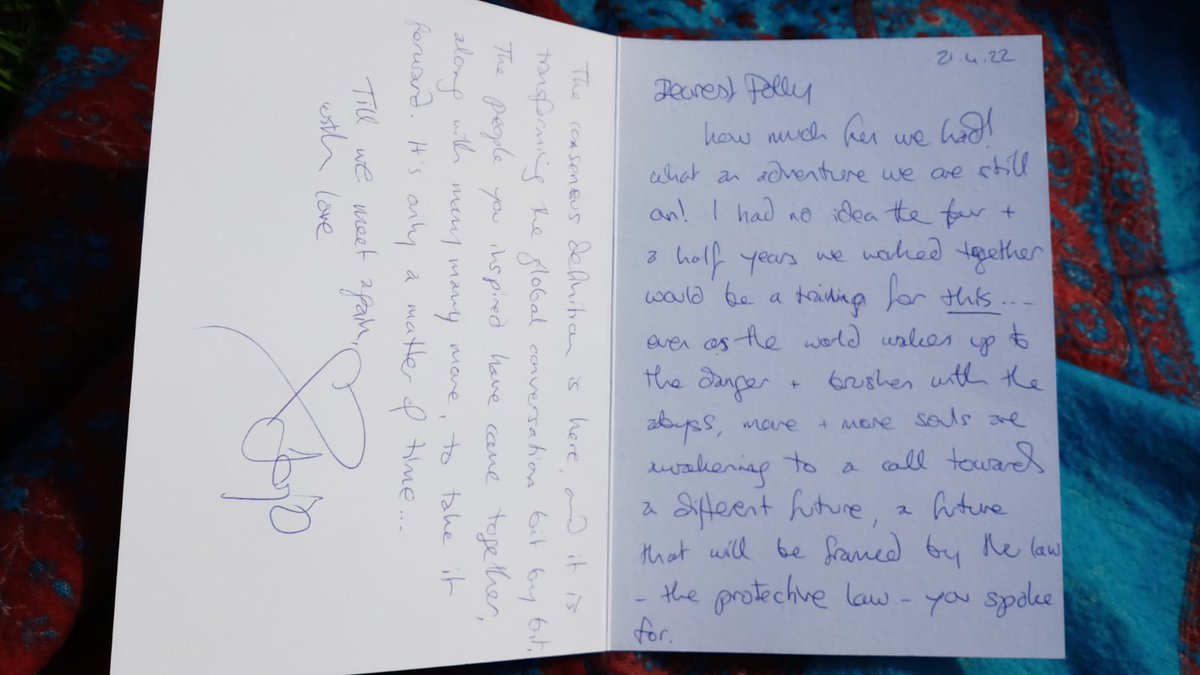 21.4.22
Dearest Polly
How much fun we had!
what an adventure we are still
on! I had no idea the four +
a half years we worked together
would be a training for this....
even as the world wakes up to
the danger + brushes with the
abyss, more + more souls are
awakening to a call towards
a different future, a future
that will be framed by the law
- the protective law - you spoke
for.
The consensus definition is here, and it is
transforming the global conversation bit by bit.
The people you inspired have come together,
along with many many more, to take it
forward. It's only a matter of time...
Till we meet again,
with love